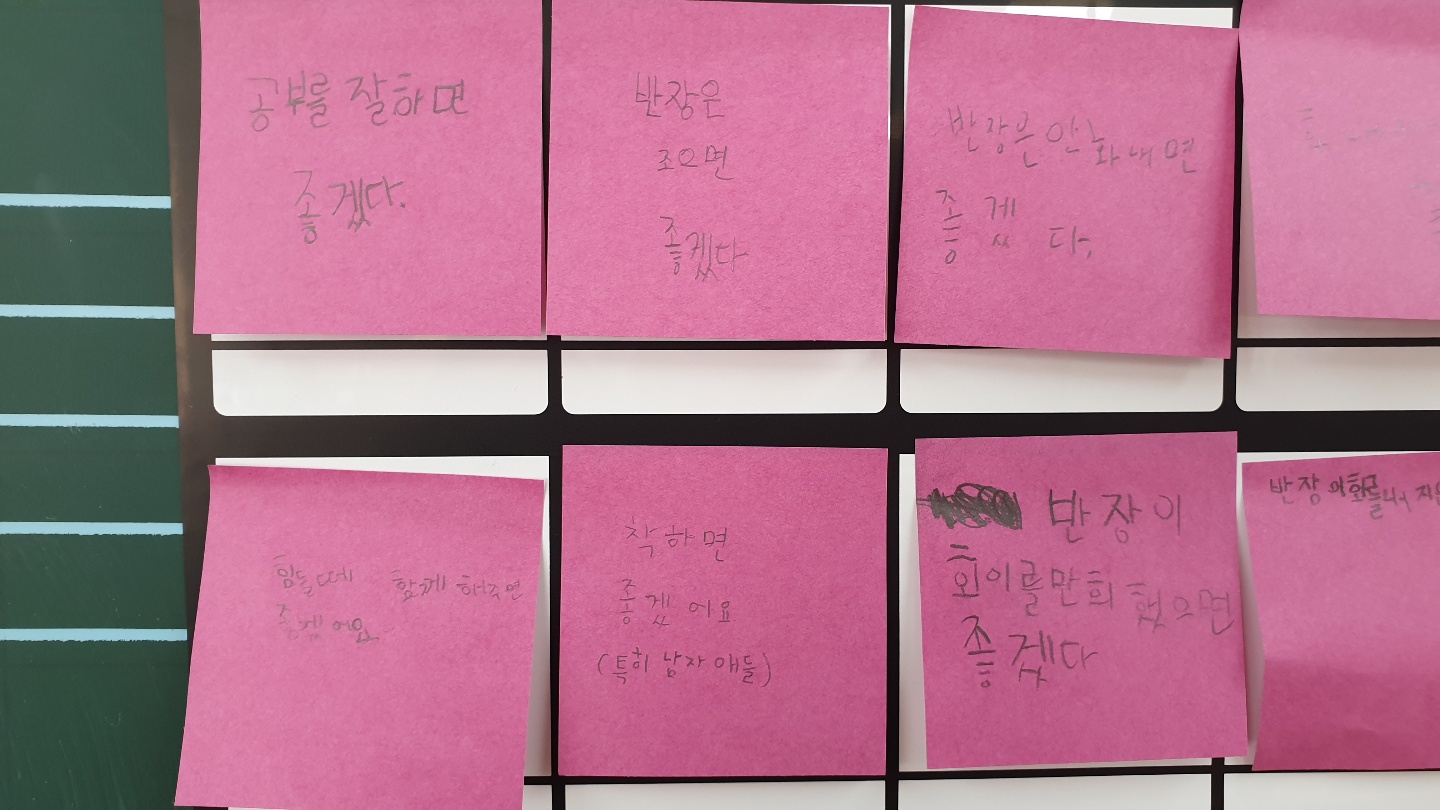 공부를 잘하면
좋겠다.
반장은
조으면
좋겠다
반장은 안
화내면
좋겠
다,
힘들때 함께 해주면
좋겠어요
착하면
좋겠어요
(특히 남자 애들)
반장이
회이를만히 했으면
좋겠다
반장